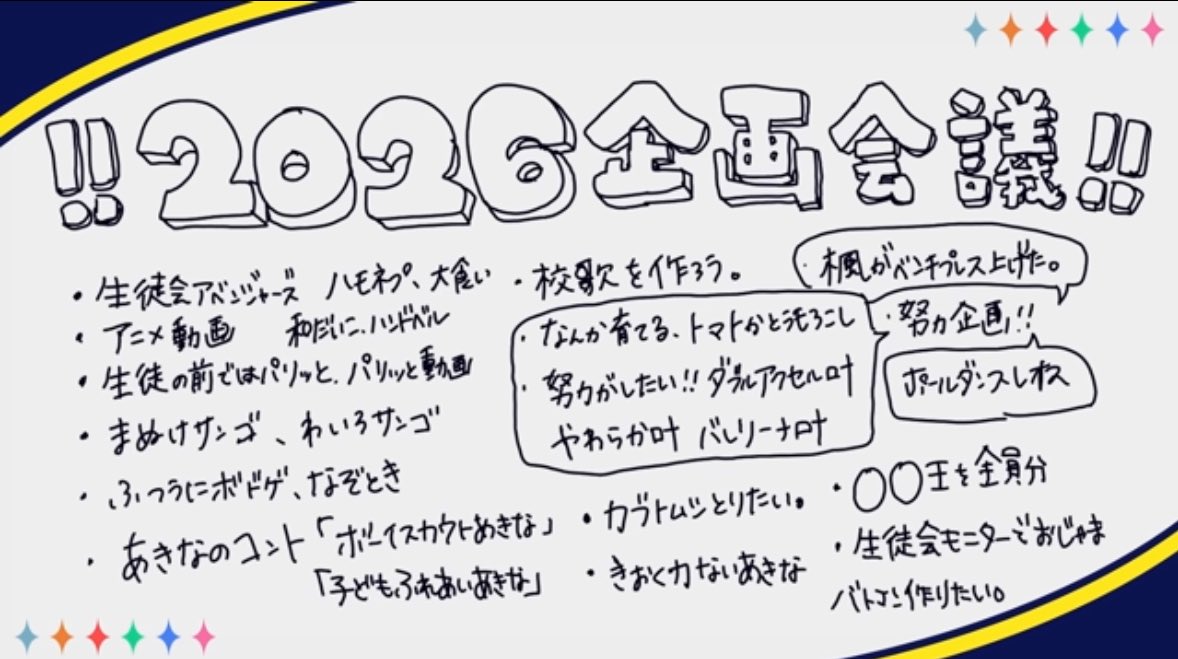 !!2026企画会議!!
・生徒会アベンジャーズ ハモネプ、大食い
・アニメ動画 和だいこ、ハンドベル
・生徒の前ではパリッと、パリッと動画
・まぬけサンゴ、わいろサンゴ
・ふつうにボドゲ、なぞとき
・あきなのコント「ボーイスカウトあきな」
「子どもふれあいあきな」
・校歌を作ろう。
・なんか育てる、トマトかとうもろこし
・努力がしたい!! ダブルアクセル叶
やわらか叶 バレリーナ叶
・楓がベンチプレス上げた。
・努力企画!!
ポールダンスレオス
・カブトムシとりたい。
・きおく力ないあきな
・〇〇王を全員分
・生徒会モニターでおじゃま
バトエン作りたい。